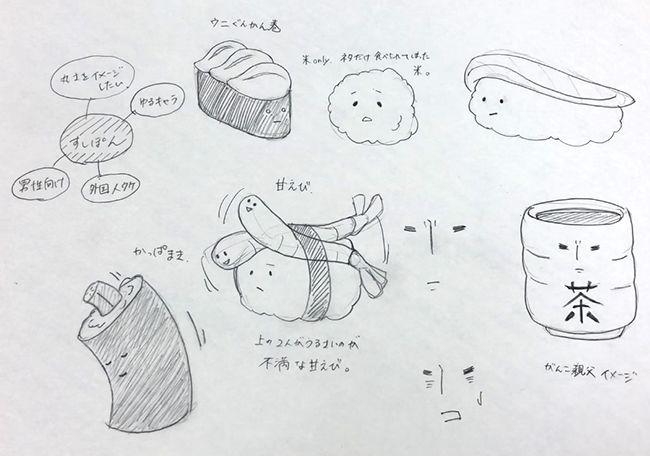 ウニぐんかん巻
米only. ネタだけ食べられてしまった
米。
したい
ゆるキャラ
すしぽん
男性向け
外国人タケ
甘えび
かっぱまき
上の2人がうるさいのが
不満な甘えび。
茶
がんこ親父イメージ